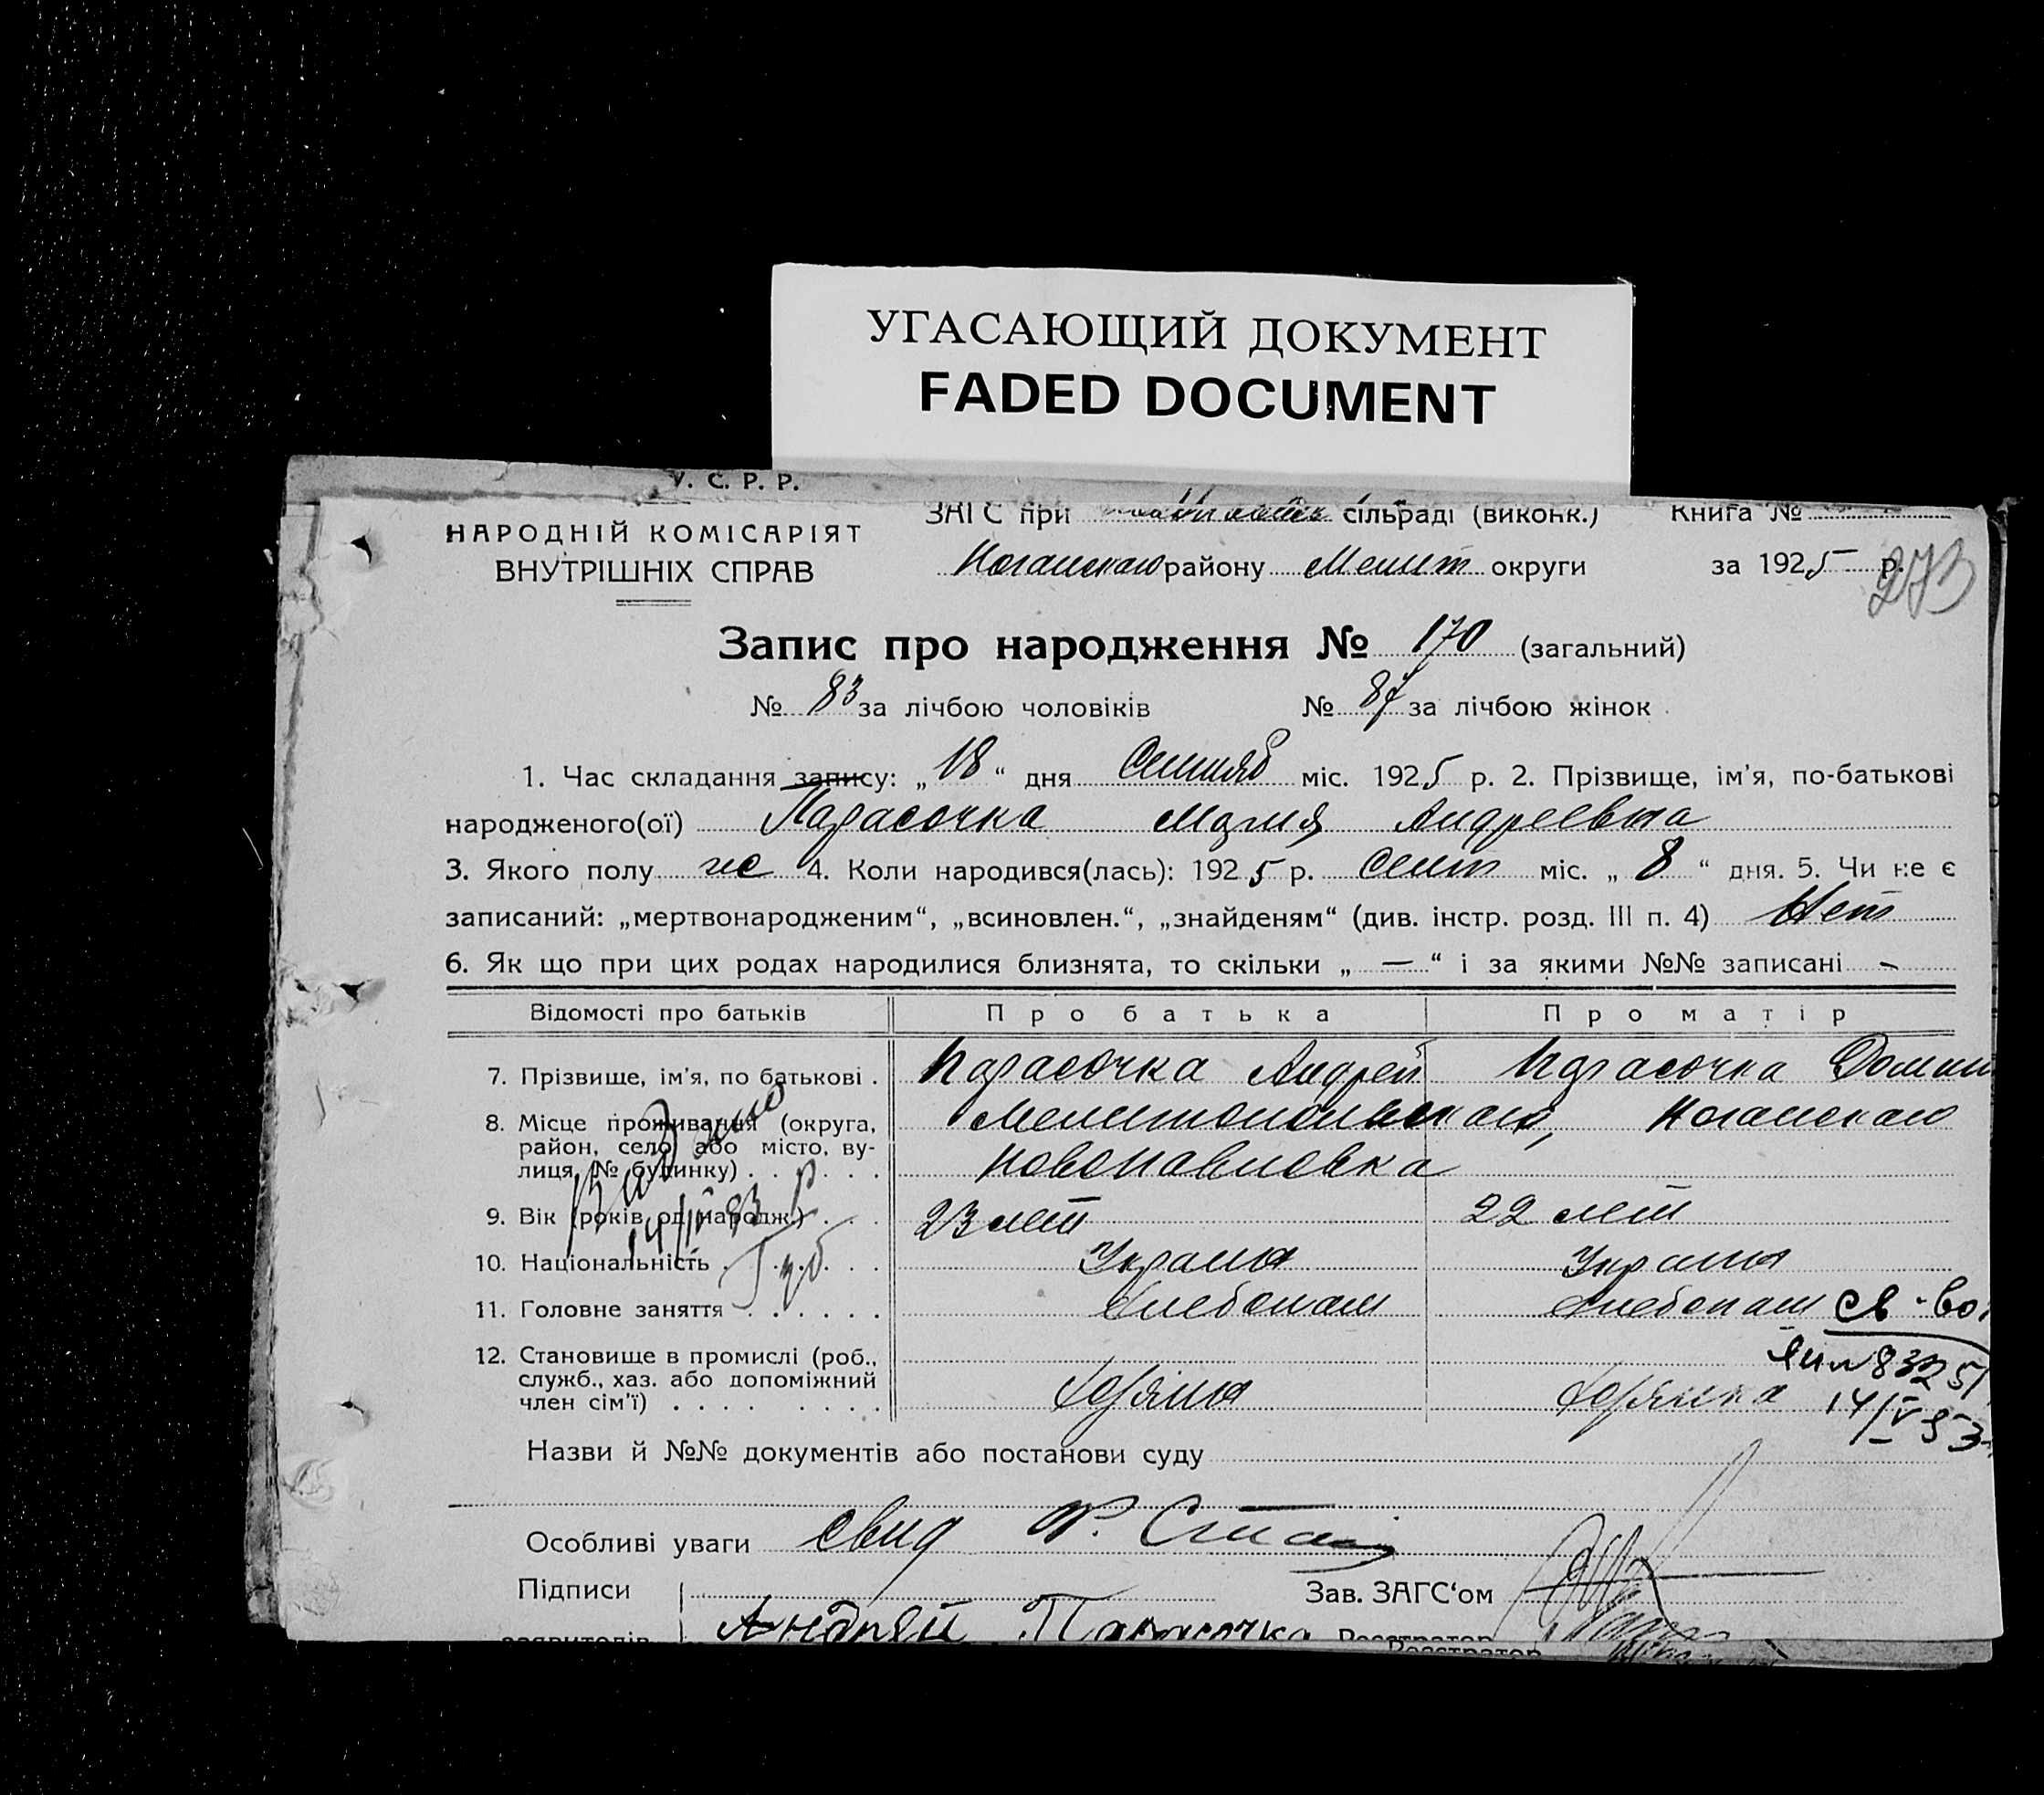 УГАСАЮЩИЙ ДОКУМЕНТ
FADED DOCUMENT
У. С. Р. Р.
НАРОДНІЙ КОМІСАРІЯТ
ВНУТРІШНІХ СПРАВ
ЗАГС при сільраді (виконк.) Книга №
Ногайского району Мелит округи за 1925 р.
273
Запис про народження № 170 (загальний)
№ 83 за лічбою чоловіків № 87 за лічбою жінок
1. Час складання запису: „18“ дня Сентяб міс. 1925 р. 2. Прізвище, ім'я, по-батькові
народженого(ої) Парасочка Мария Андреевна
3. Якого полу же 4. Коли народився(лась): 1925 р. Сент міс. „8“ дня. 5. Чи не є
записаний: „мертвонародженим“, „всиновлен.“, „знайденям“ (див. інстр. розд. III п. 4) Нет
6. Як що при цих родах народилися близнята, то скільки „—“ і за якими №№ записані -
Відомості про батьків Про батька Про матір
7. Прізвище, ім'я, по батькові . Парасочка Андрей Парасочка
8. Місце проживання (округа, район, село або місто, вулиця, № будинку) Мелитопольского, Ногайского
Новопавловка
9. Вік (років од народж.) 23 лет 22 лет
10. Національність Украин Украин
11. Головне заняття Хлебопаш Хлебопаш
12. Становище в промислі (роб., служб., хаз. або допоміжний член сім'ї) Хозяин Хозяйка
14/V 53
Назви й №№ документів або постанови суду
Особливі уваги свид
Підписи Зав. ЗАГС‘ом
заявителів Андрей Парасочка Реєстратор
Реєстратор